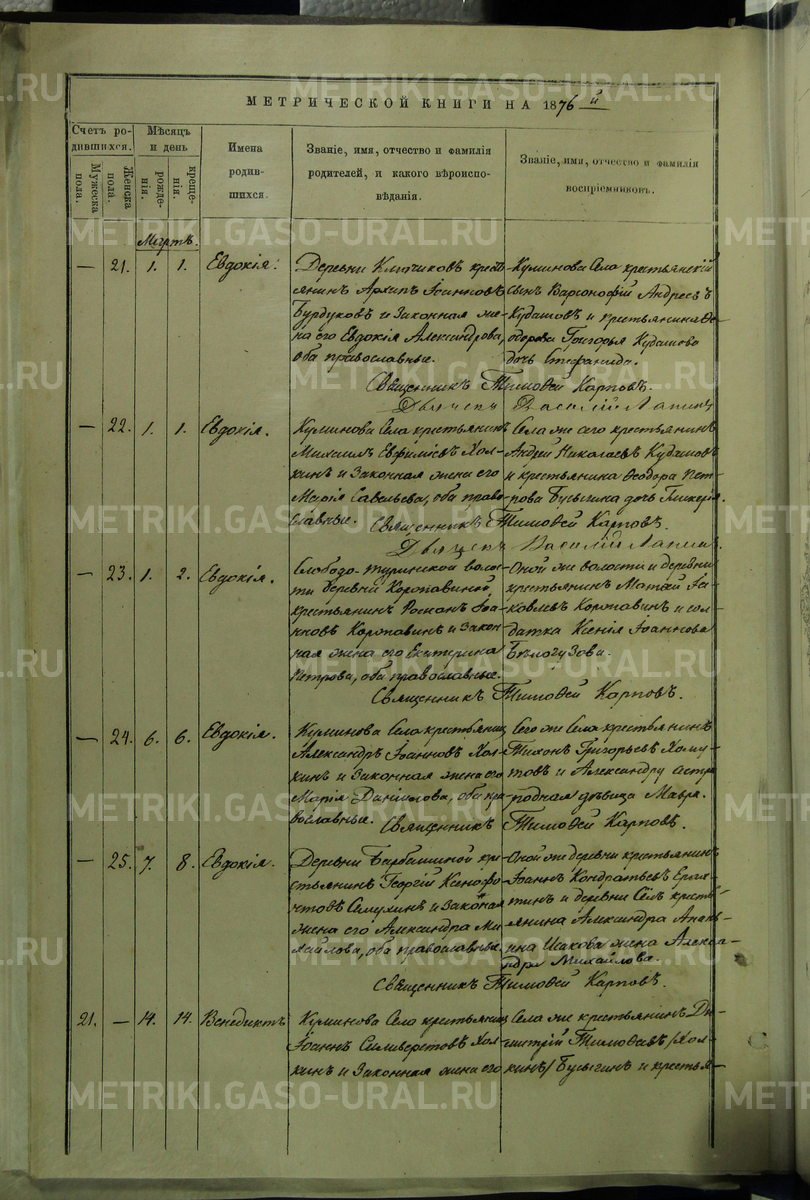 МЕТРИЧЕСКОЙ КНИГИ НА 1876й
Счетъ родившихся.
Мужеска пола.
Женска пола.
Мѣсяцъ и день
рожденія.
крещенія.
Имена родившихся.
Званіе, имя, отчество и фамилія родителей, и какого вѣроисповѣданія.
Званіе, имя, отчество и фамилія воспріемниковъ.
Мартъ.
— 21. 1. 1. Евдокія.
Деревни Ключиковъ крестьянинъ Архипъ Іоанновъ
Бурдуковъ и законная жена его Евдокія Александрова,
оба православные.
Куминова Села крестьянскій
сынъ Варсонофій Андреевъ
Кудашовъ и крестьянина Ѳеодора Григорья Кудашова
дочь Стефанида.
Священникъ Тимоѳей Карповъ.
Василій Лапинъ
— 22. 1. 1. Евдокія.
Куминова Села крестьянинъ
Михаилъ Евфиміевъ Холкинъ и законная жена его
Марія Савельева, оба православные.
Села же сего крестьянинъ
Андрей Николаевъ Кудашовъ
и крестьянина Ѳеодора Петрова дочь Гликерія.
Священникъ Тимоѳей Карповъ.
Василій Лапинъ.
— 23. 1. 2. Евдокія.
Слободо-туринской волости деревни Коротавиной
крестьянинъ Романъ Іоанновъ Коротавинъ и законная жена его Екатерина
Петрова, оба православные.
Оной же волости и деревни
крестьянинъ Матѳей Іаковлевъ Коротавинъ и солдатка Ксенія Іоаннова
Бѣлогузова.
Священникъ Тимоѳей Карповъ.
— 24. 6. 6. Евдокія.
Куминова Села крестьянинъ
Александръ Іоанновъ Холкинъ и законная жена его
Марія Даніилова, оба православные.
Сего же Села крестьянинъ
Тихонъ Григорьевъ Хомутовъ и Александру
дѣвица Мавра.
Священникъ Тимоѳей Карповъ.
— 25. 7. 8. Евдокія.
Деревни Барбашиной крестьянинъ Георгій Ксенофонтовъ Семухинъ и законная
жена его Александра Михайлова, оба православные.
Оной же деревни крестьянинъ
Іоаннъ Кондратьевъ
и деревни крестьянина Александра
жена Александра Михайлова.
Священникъ Тимоѳей Карповъ.
21. — 14. 14. Венедиктъ
Куминова Села крестьянинъ
Іоаннъ Селиверстовъ Холкинъ и законная жена его
Села же крестьянинъ Димитрій Тимоѳеевъ /Холкинъ/ Бусыгинъ и крестья-
METRIKI.GASO-URAL.RU